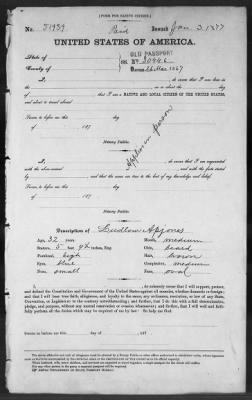 [FORM FOR NATIVE CITIZEN.]
No. 51939 Paid Issued Jan 3, 1877
UNITED STATES OF AMERICA.
State of
County of
OLD PASSPORT
No. 30446
Dated 26 Mar 1867
I, do swear that I was born in
on or about the day of
that I am a NATIVE AND LOYAL CITIZEN OF THE UNITED STATES,
and about to travel abroad
Sworn to before me this day of
187
Notary Public.
Applies in person
Sworn to before me this day of
187
Notary Public.
Description of Ludlow Apjones
Age, 32 years
Stature, 5 feet 9½ inches, Eng.
Forehead, high
Eyes, blue
Nose, small
Mouth, medium
Chin, beard
Hair, brown
Complexion, medium
Face, oval
I, do solemnly swear that I will support, protect,
and defend the Constitution and Government of the United States against all enemies, whether domestic or foreign;
and that I will bear true faith, allegiance, and loyalty to the same, any ordinance, resolution, or law of any State,
Convention, or Legislature to the contrary notwithstanding; and further, that I do this with a full determination,
pledge, and purpose, without any mental reservation or evasion whatsoever; and further, that I will well and faith-
fully perform all the duties which may be required of me by law: So help me God.
Sworn to before me this day of 187